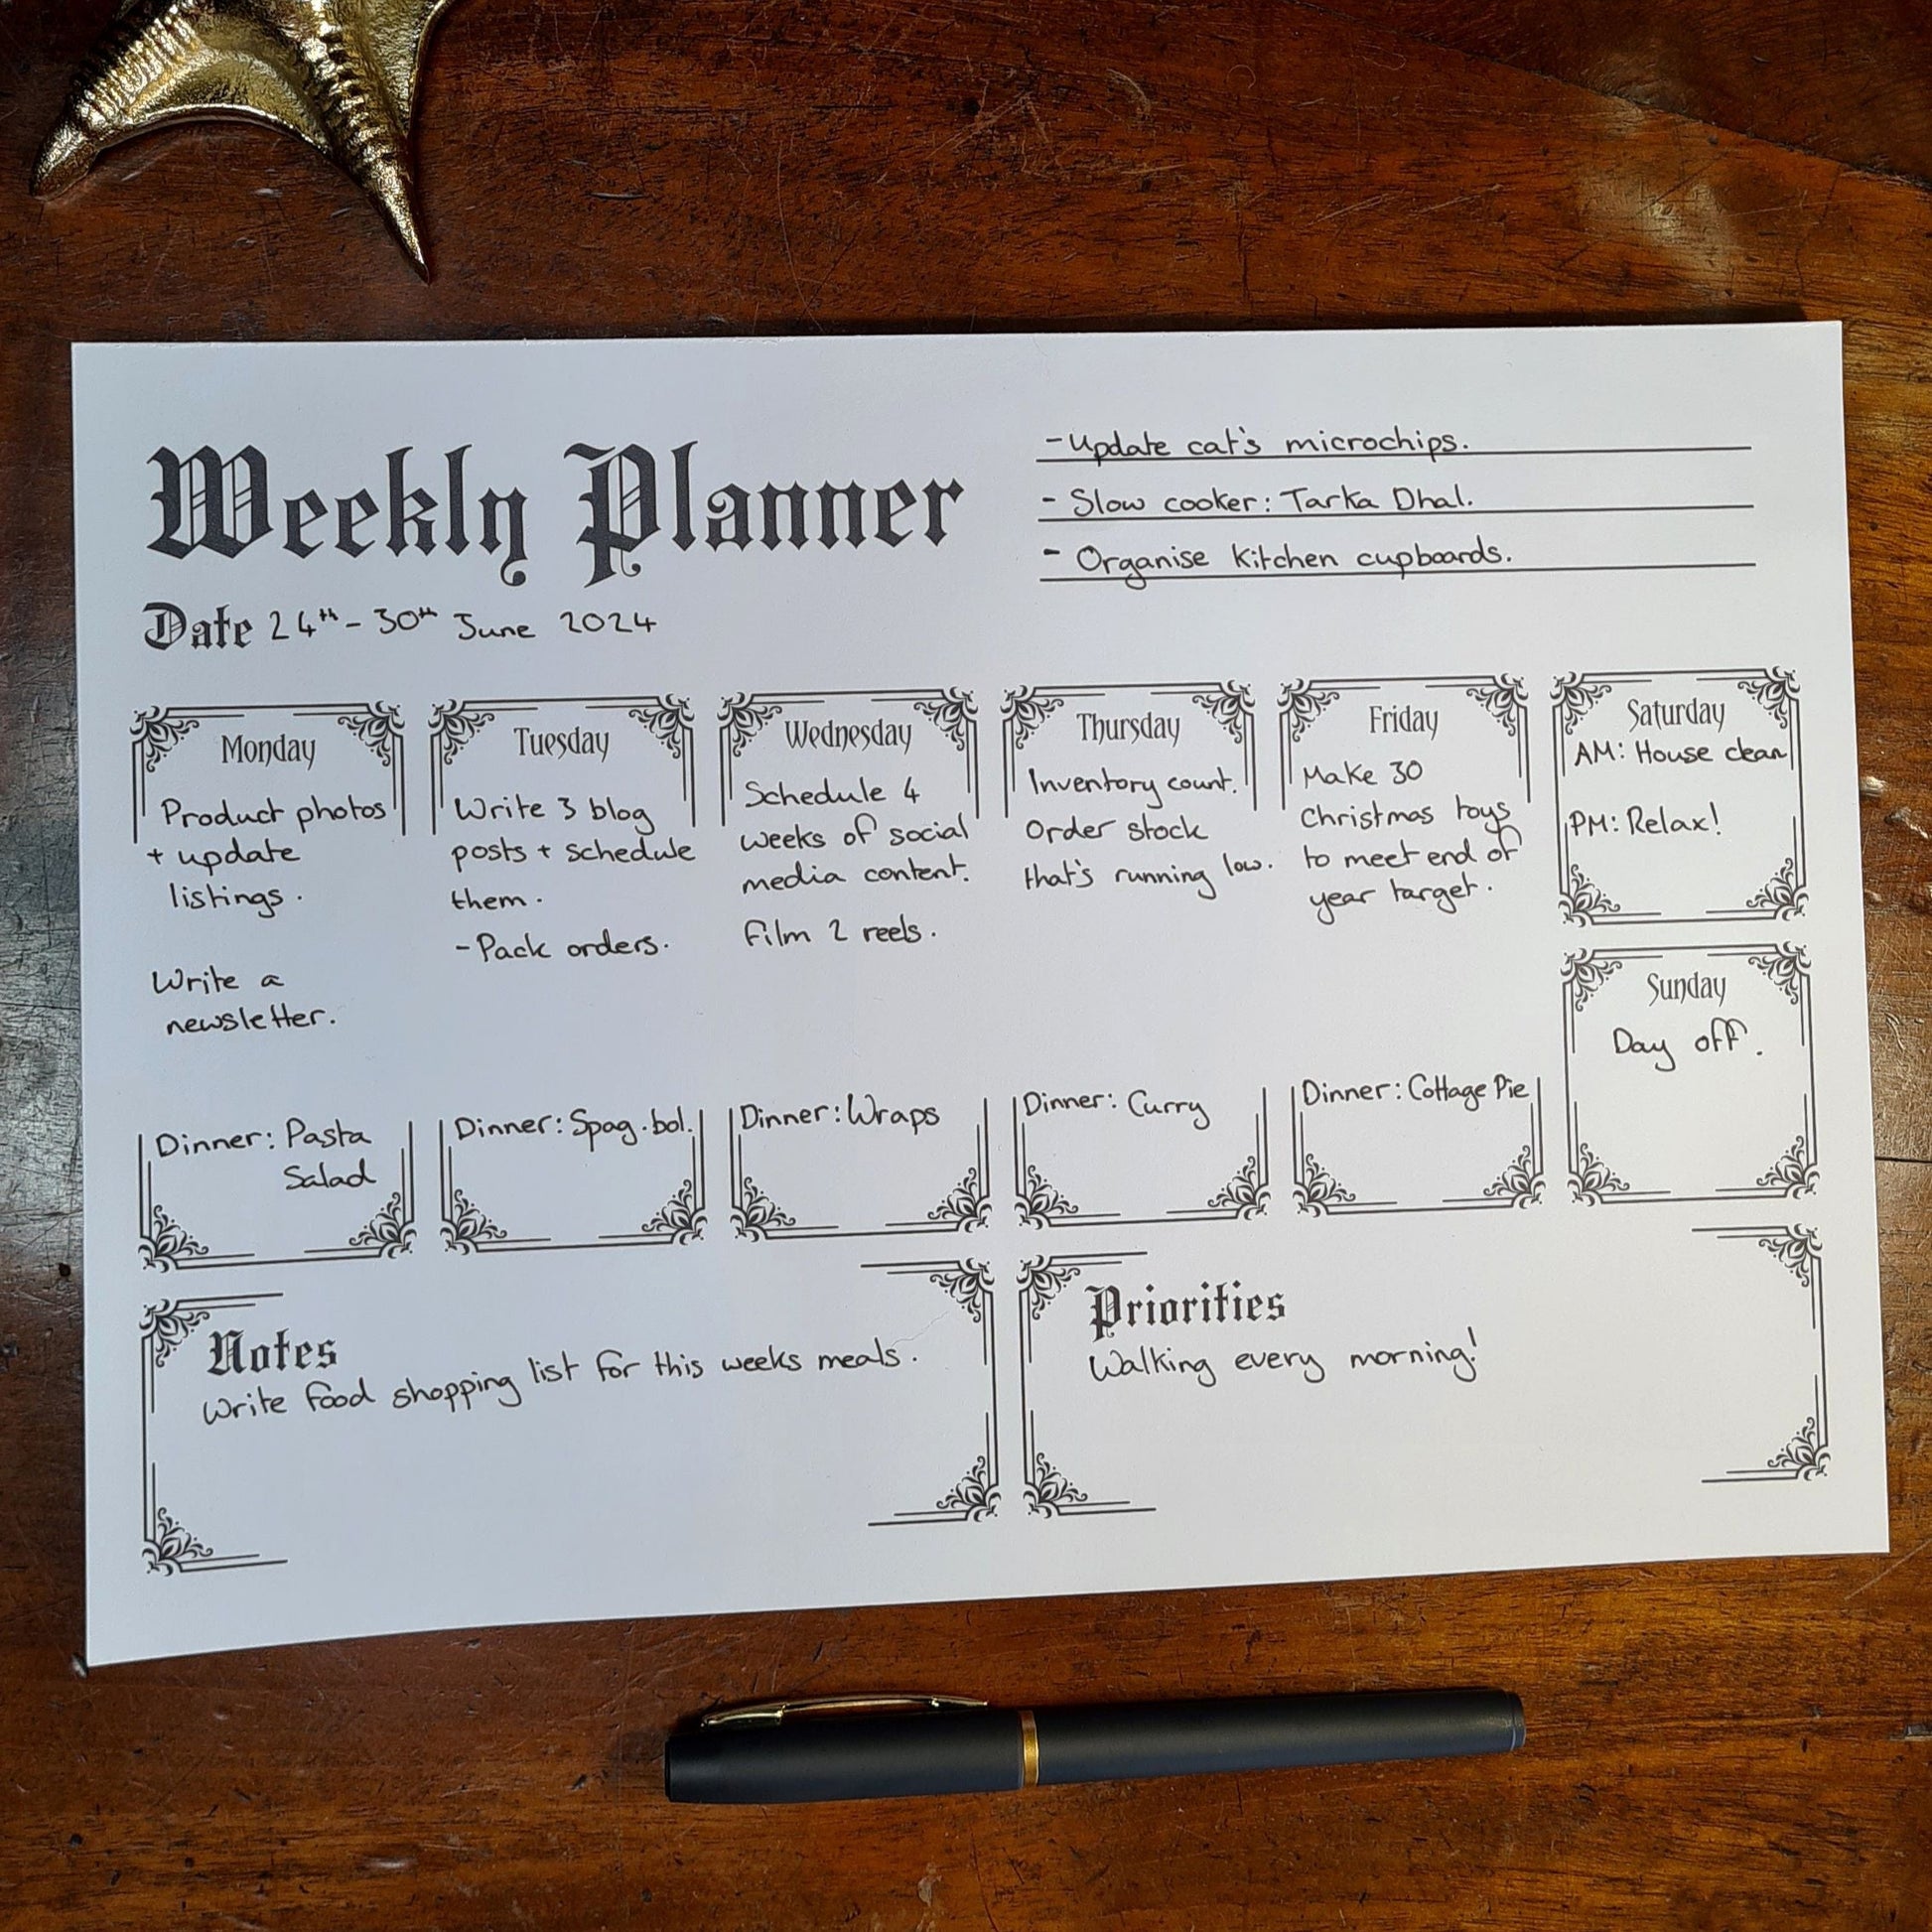 Weekly Planner
Date 24th - 30th June 2024
- Update cat's microchips.
- Slow cooker: Tarka Dhal.
- Organise Kitchen cupboards.
Monday
Product photos
+ update
listings.
Write a
newsletter.
Dinner: Pasta
Salad
Tuesday
Write 3 blog
posts + schedule
them.
- Pack orders.
Dinner: Spag. bol.
Wednesday
Schedule 4
weeks of social
media content.
Film 2 reels.
Dinner: Wraps
Thursday
Inventory count.
Order stock
that's running low.
Dinner: Curry
Friday
Make 30
Christmas toys
to meet end of
year target.
Dinner: Cottage Pie
Saturday
AM: House clean
PM: Relax!
Sunday
Day off.
Notes
Write food shopping list for this weeks meals.
Priorities
Walking every morning!